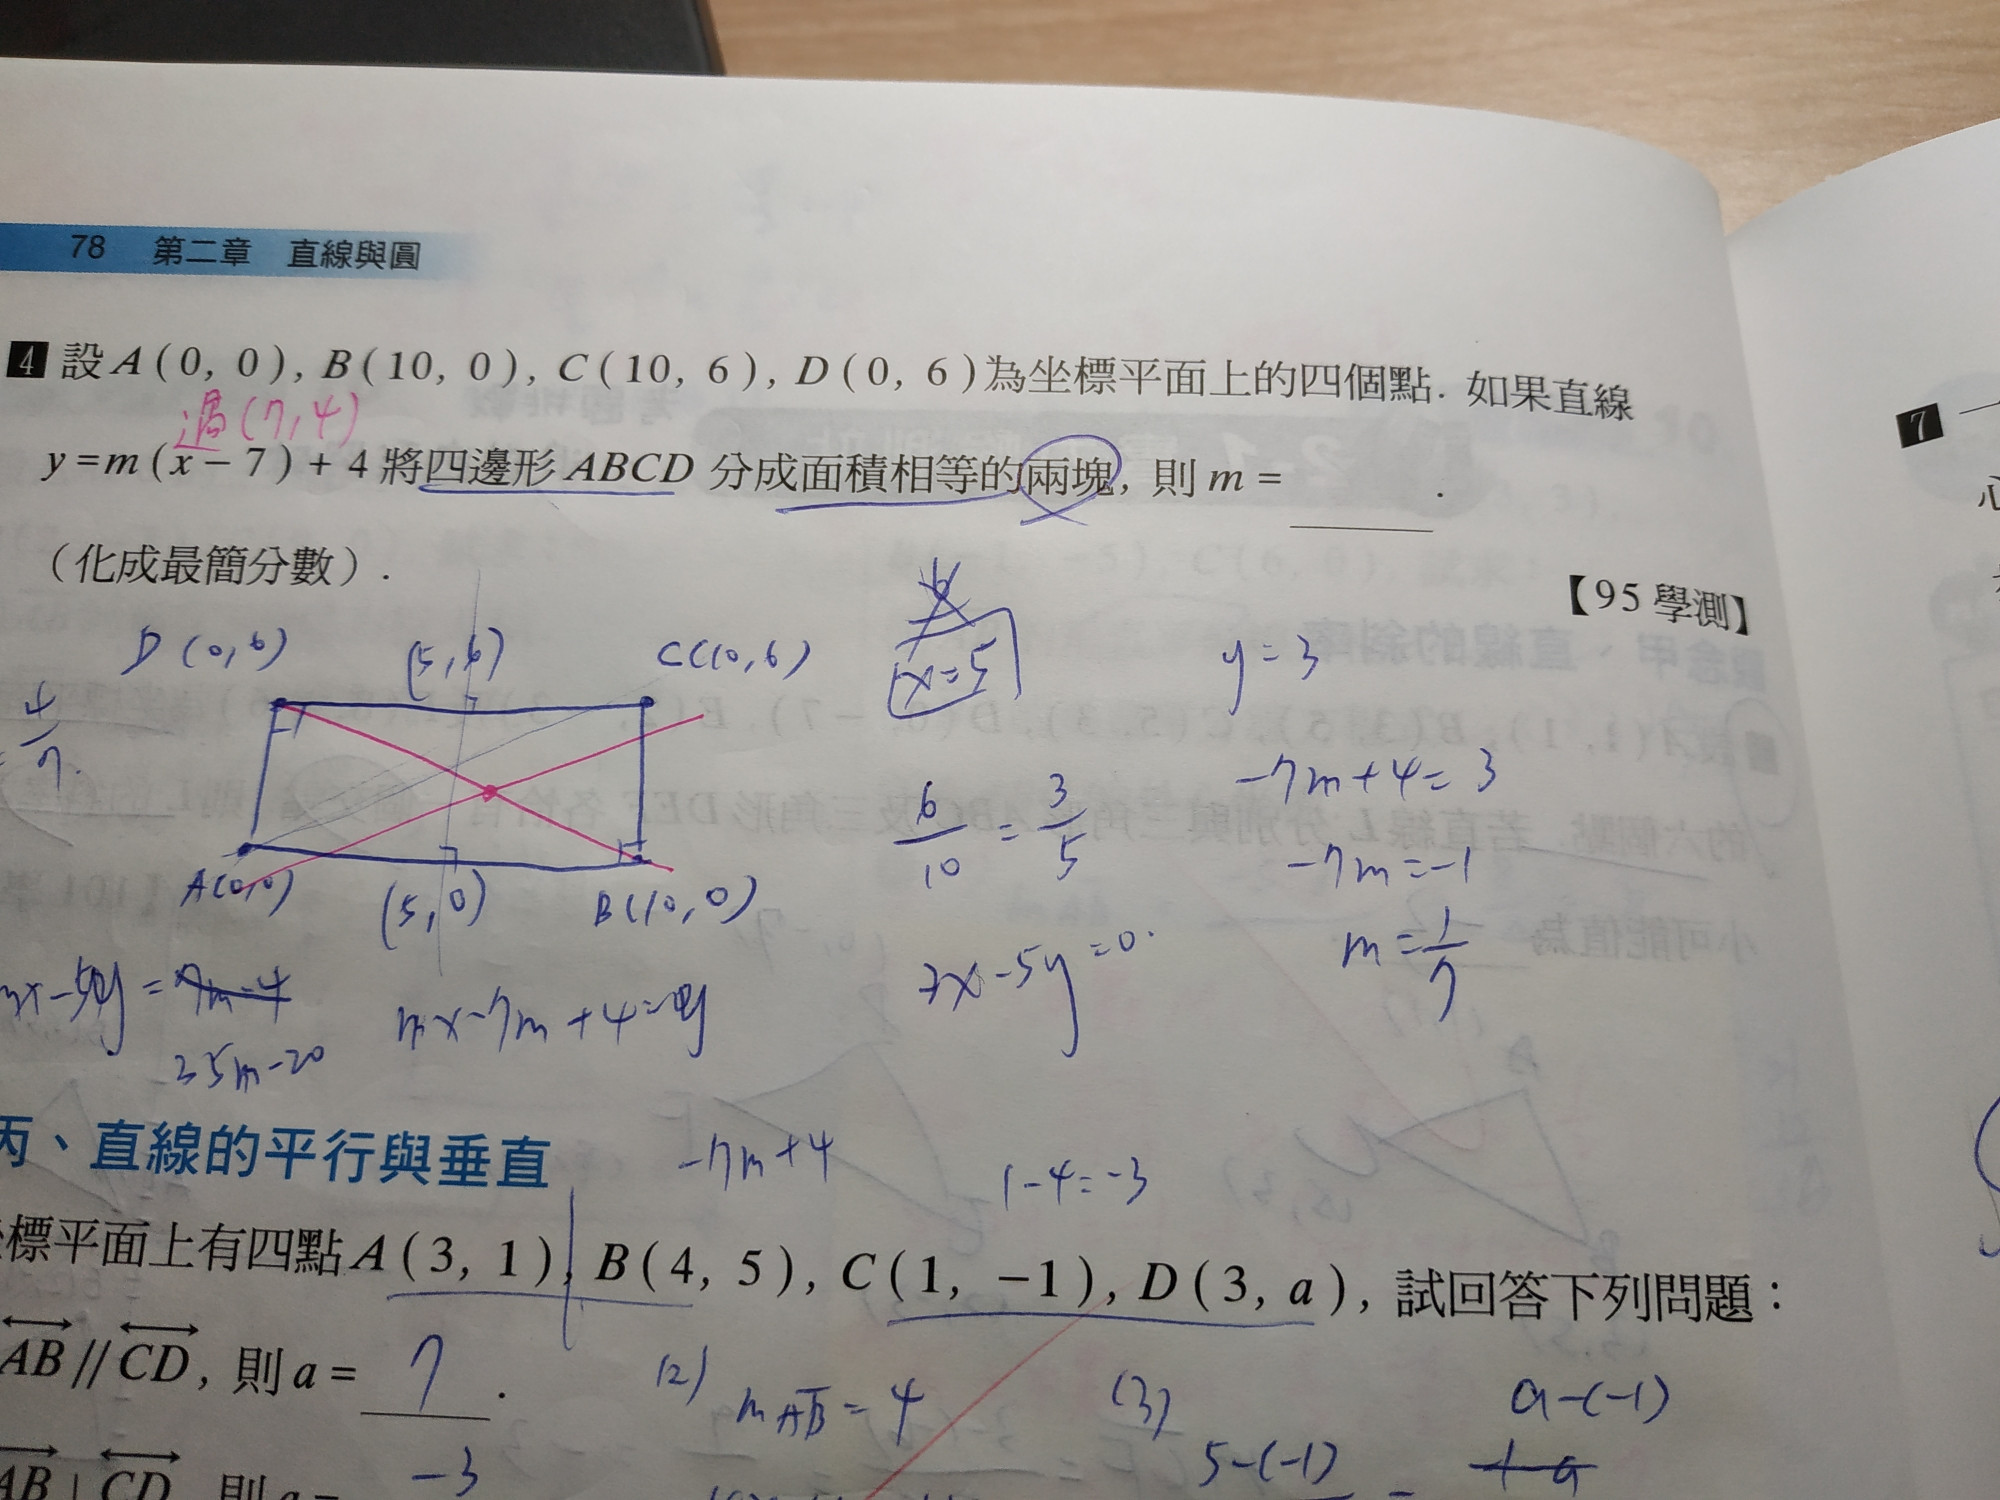 78 第二章 直線與圓
4 設A(0, 0), B(10, 0), C(10, 6), D(0, 6)為坐標平面上的四個點. 如果直線
過(7,4)
y=m(x-7)+4將四邊形ABCD 分成面積相等的兩塊, 則m= .
(化成最簡分數).
【95學測】
D(0,6) (5,6) C(10,6)
x=5
y=3
4/7.
6/10 = 3/5
-7m+4=3
-7m=-1
m=1/7
A(0,0) (5,0) B(10,0)
7x-5y=0.
mx-7m+4=y
35m-20
丙、直線的平行與垂直
-7m+4
1-4=-3
標平面上有四點A(3, 1), B(4, 5), C(1, -1), D(3, a), 試回答下列問題:
AB // CD, 則a= 7 .
(2) mAB=4
(3)
a-(-1)
5-(-1)
AB ⊥ CD 則a= -3
7